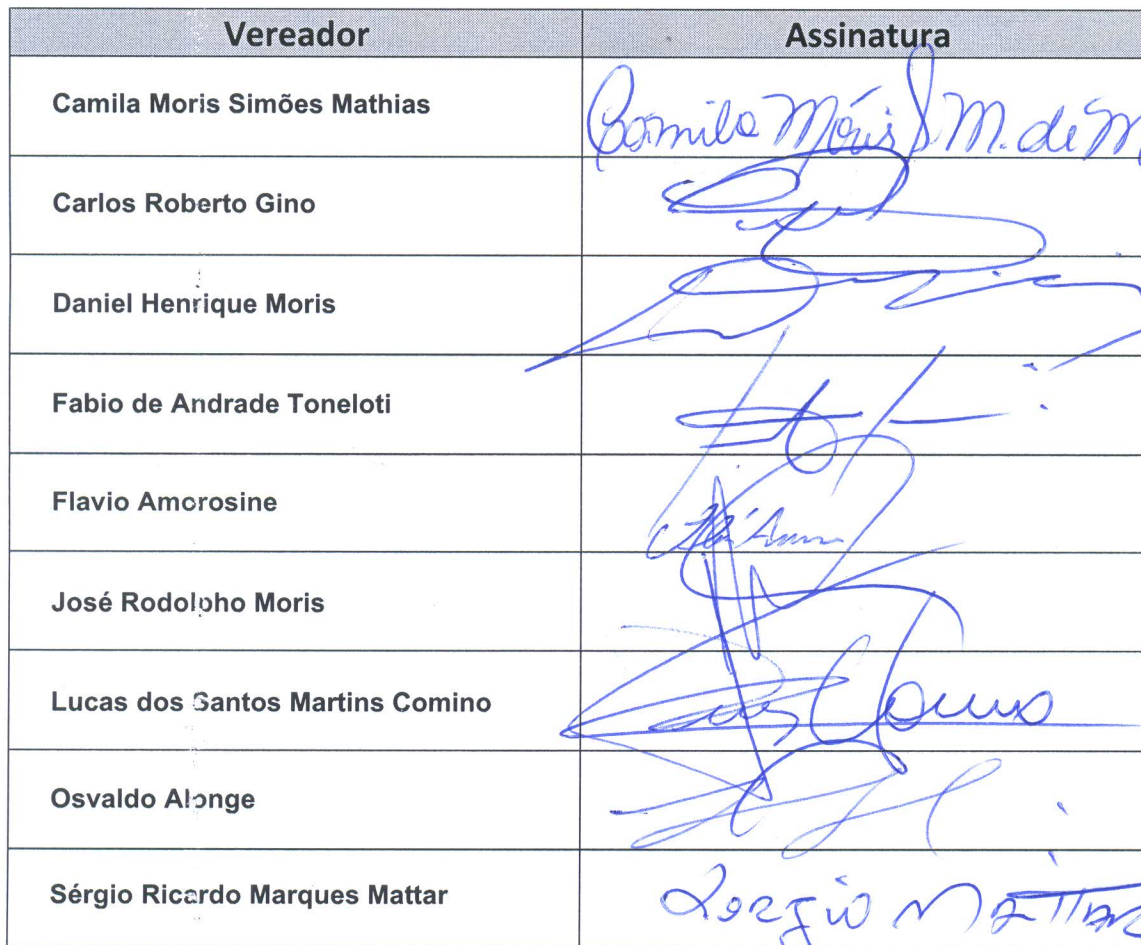 Vereador Assinatura
Camila Moris Simões Mathias Camila Móris S M. de M
Carlos Roberto Gino
Daniel Henrique Moris
Fabio de Andrade Toneloti
Flavio Amorosine
José Rodolpho Moris
Lucas dos Santos Martins Comino Comino
Osvaldo Alonge
Sérgio Ricardo Marques Mattar Sergio Mattar